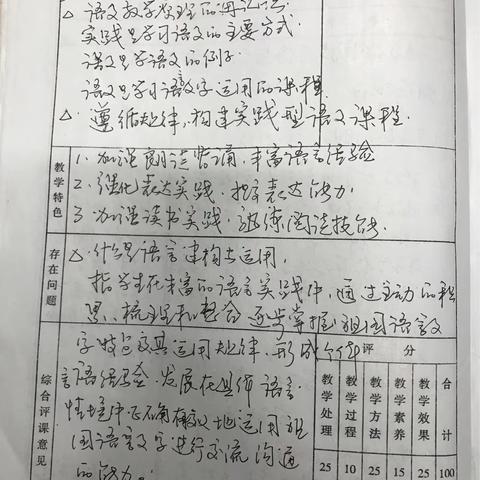 △ 语文教学原理的再认识
实践是学习语文的主要方式
课文是学语文的例子
语文是学习语言文字运用的课程
△ 遵循规律,构建实践型语文课程.
教学特色
1. 加强朗读背诵,丰富语言经验
2. 强化表达实践,提高表达能力
3. 加强读书实践,训练阅读技能.
存在问题
△. 什么是语言建构与运用,
指学生在丰富的语言实践中,通过主动的积
累、梳理和整合,逐步掌握祖国语言文
综合评课意见
字特点及其运用规律,形成个体
言语经验,发展在具体语言
情境中正确有效地运用祖
国语言文字进行交流沟通
的能力.
评 分
教学处理 教学过程 教学方法 教学素养 教学效果 合计
25 10 25 15 25 100